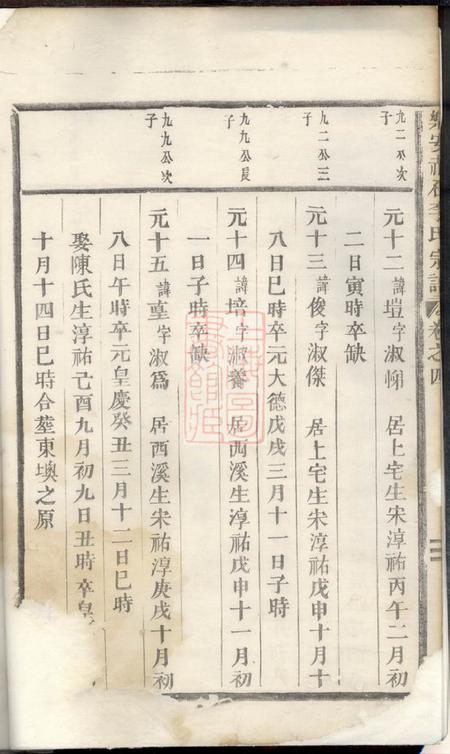 樂安 李氏宗譜 卷之四
九二公次子
元十二 諱塏字淑悌 居上宅生宋淳祐丙午二月初
二日寅時卒缺
九二公三子
元十三 諱俊字淑傑 居上宅生宋淳祐戊申十月十
八日巳時卒元大德戊戌三月十一日子時
九九公長子
元十四 諱培字淑養 居西溪生淳祐戊申十一月初
一日子時卒缺
九九公次子
元十五 諱 字淑爲 居西溪生宋祐淳庚戌十月初
八日午時卒元皇慶癸丑三月十二日巳時
娶陳氏生淳祐己酉九月初九日丑時卒皇
十月十四日巳時合塟東墺之原